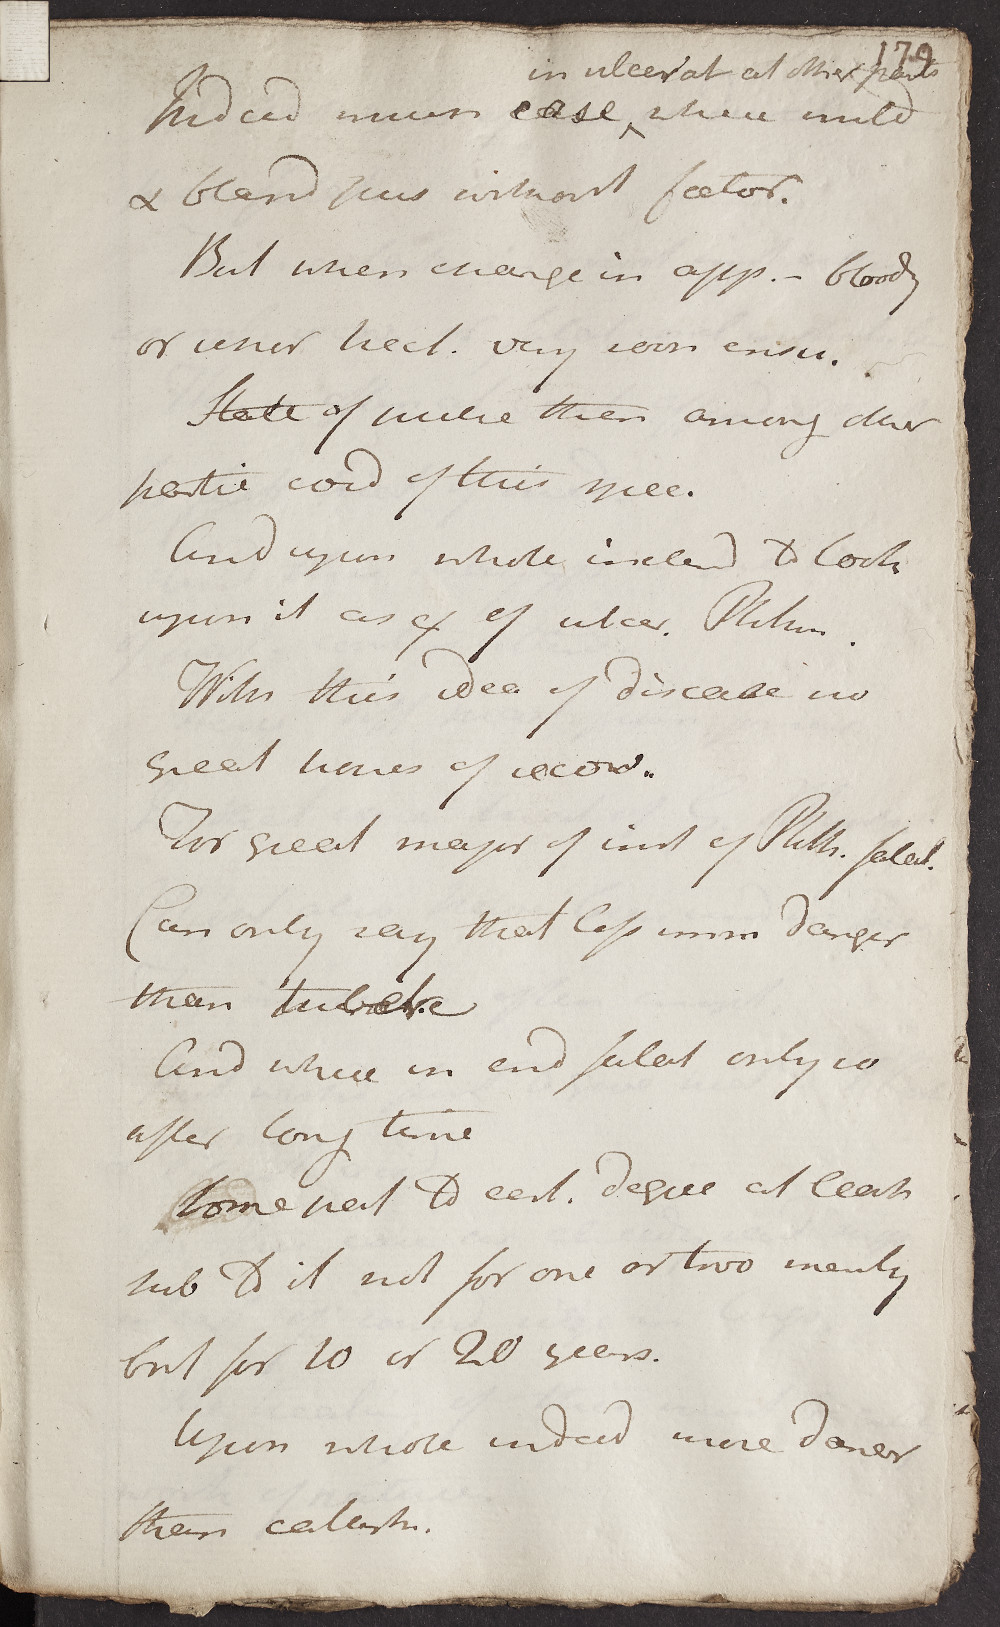 179
in ulcerat at other parts
Indeed much ease ^ where mild
& bland pus without fœtor.
But when change in app. - bloody
or ichor hect. very soon ensu.
State of pulse then among other
partic cond of this spec.
And upon whole inclend to look
upon it as of ulcer. Phthis.
With this idea of disease no
great hopes of recov..
For great major of inst of Phth. fatal.
Can only say that less imm danger
than tubercle
And where in end fatal only so
after long time
Some pat to cert. degree at least
sub to it not for one or two months
but for 10 or 20 years.
Upon whole indeed more danger
than catarrh.